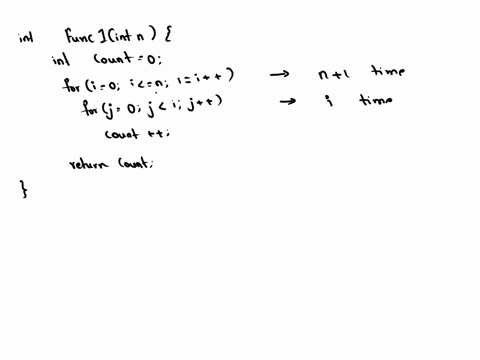 int Func1(int n) {
int count = 0;
for(i=0; i<=n; i=i++) → n+1 time
for(j=0; j<i; j++) → i time
count ++;
return count;
}